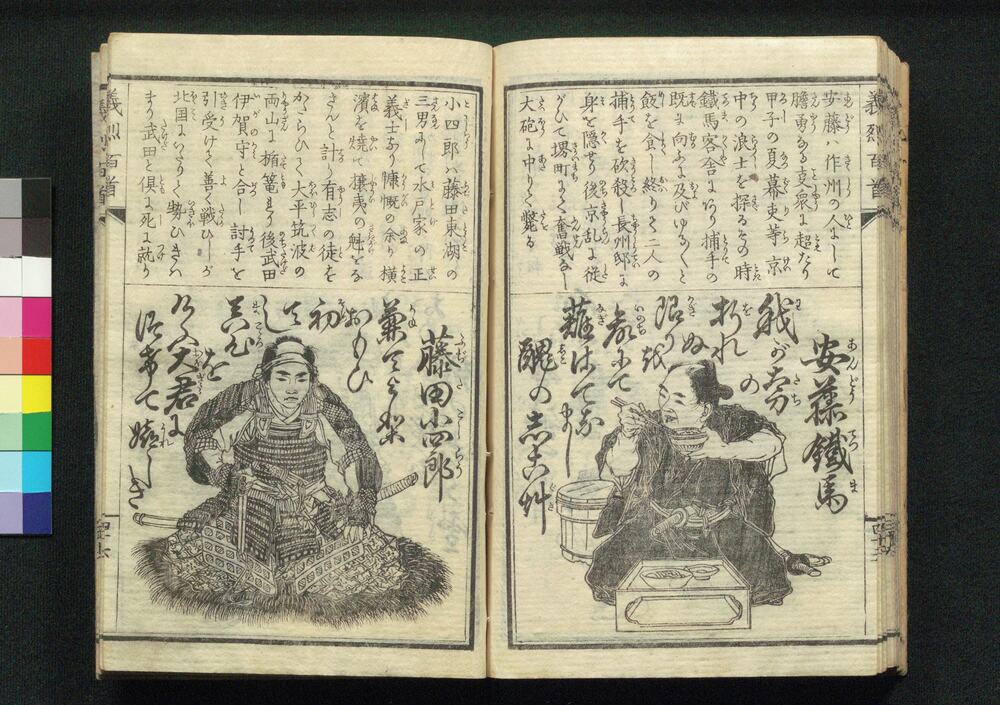 義烈百首
安藤ハ作州の人にして
膽勇あり支衆に超たり
甲子の夏幕吏等京
中の浪士を探るその時
鐵馬客舎にあり捕手の
既に向ふに及びゆる〳〵と
飯を食し終りて二人の
捕手を砍殺し長州邸に
身を隠せり後京乱に従
がひて堺町にて奮戦なし
大砲に中りて斃る
安藤鐵馬
我が太刀
の折れ
ぬ限りは
命にて
薙はてなまし
醜のしこ艸
四十五
小四郎ハ藤田東湖の
三男にして水戸家の正
義士なり慷慨の余り横
濱を焼て攘夷の魁をな
さんと計り有志の徒を
かたらひて大平筑波の
両山に楯篭まり後武田
伊賀守と合し討手を
引受けて善く戦ひしが
北国にいたりて勢ひきハ
まり武田と倶に死に就り
藤田小四郎
兼てより
おもひ
初にし
真心を
大君に
告て嬉しき
義烈百首
四十六